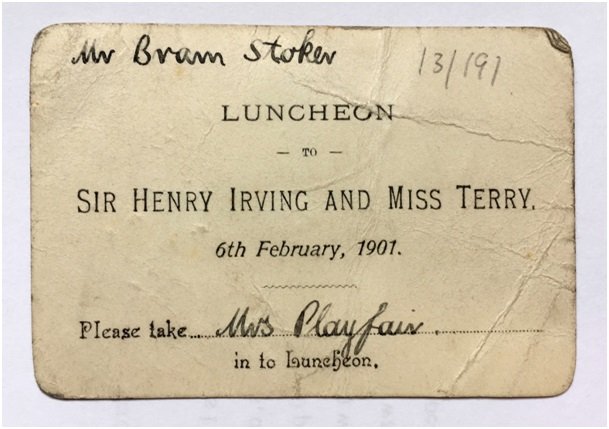 Mr Bram Stoker 13/191
LUNCHEON
— TO —
SIR HENRY IRVING AND MISS TERRY.
6th February, 1901.
Please take Mrs Playfair.
in to Luncheon.